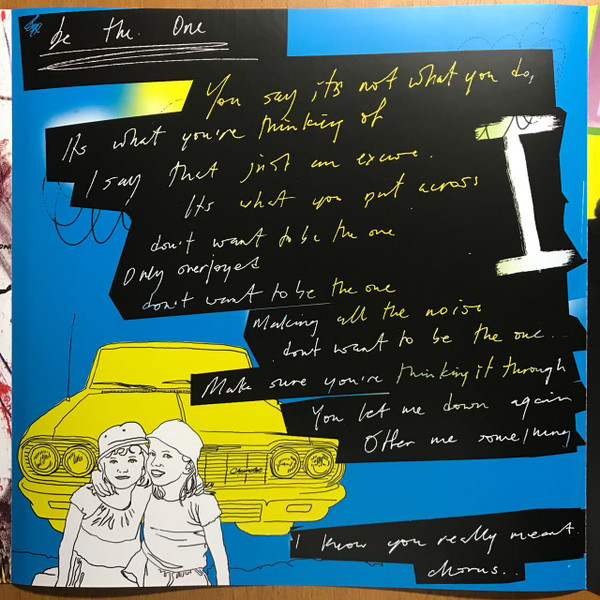 be the. One
You say it's not what you do,
It's what you're thinking of
I say that just an excuse.
Its what you put across
don't want to be the one
Only overjoyed
don't want to be the one
Making all the noise
dont want to be the one..
Make sure you're thinking it through
You let me down again
Offer me something
I know you really meant.
chorus..
I
Chevrolet